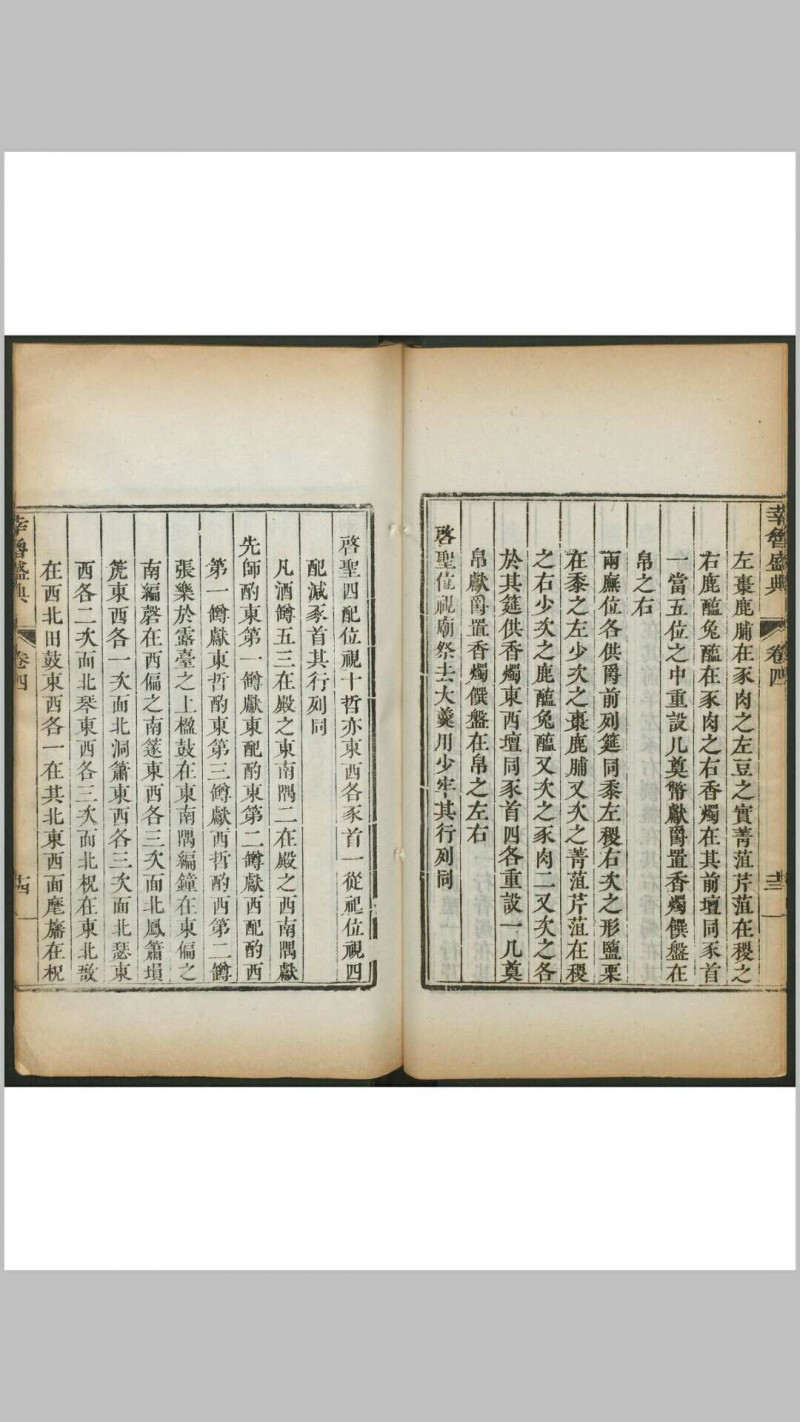 幸魯盛典
卷四
十三
左棗鹿脯在豕肉之左豆之實菁菹芹菹在稷之
右鹿醢兔醢在豕肉之右香燭在其前壇同豕首
一當五位之中重設几奠幣獻爵置香燭饌盤在
帛之右
兩廡位各供爵前列筵同黍左稷右次之形鹽栗
在黍之左少次之棗鹿脯又次之菁菹芹菹在稷
之右少次之鹿醢兔醢又次之豕肉二又次之各
於其筵供香燭東西壇同豕首四各重設一几奠
帛獻爵置香燭饌盤在帛之左右
啓聖位視廟祭去大羹用少牢其行列同
啓聖四配位視十哲亦東西各豕首一從祀位視四
配減豕首其行列同
凡酒罇五三在殿之東南隅二在殿之西南隅獻
先師酌東第一罇獻東配酌東第二罇獻西配酌西
第一罇獻東哲酌東第三罇獻西哲酌西第二罇
張樂於露臺之上楹鼓在東南隅編鐘在東偏之
南編磬在西偏之南篴東西各三次面北鳳簫塤
篪東西各一次面北洞簫東西各三次面北瑟東
西各二次面北琴東西各三次面北柷在東北敔
在西北田鼓東西各一在其北東西面麾旛在柷
幸魯盛典
卷四
十四